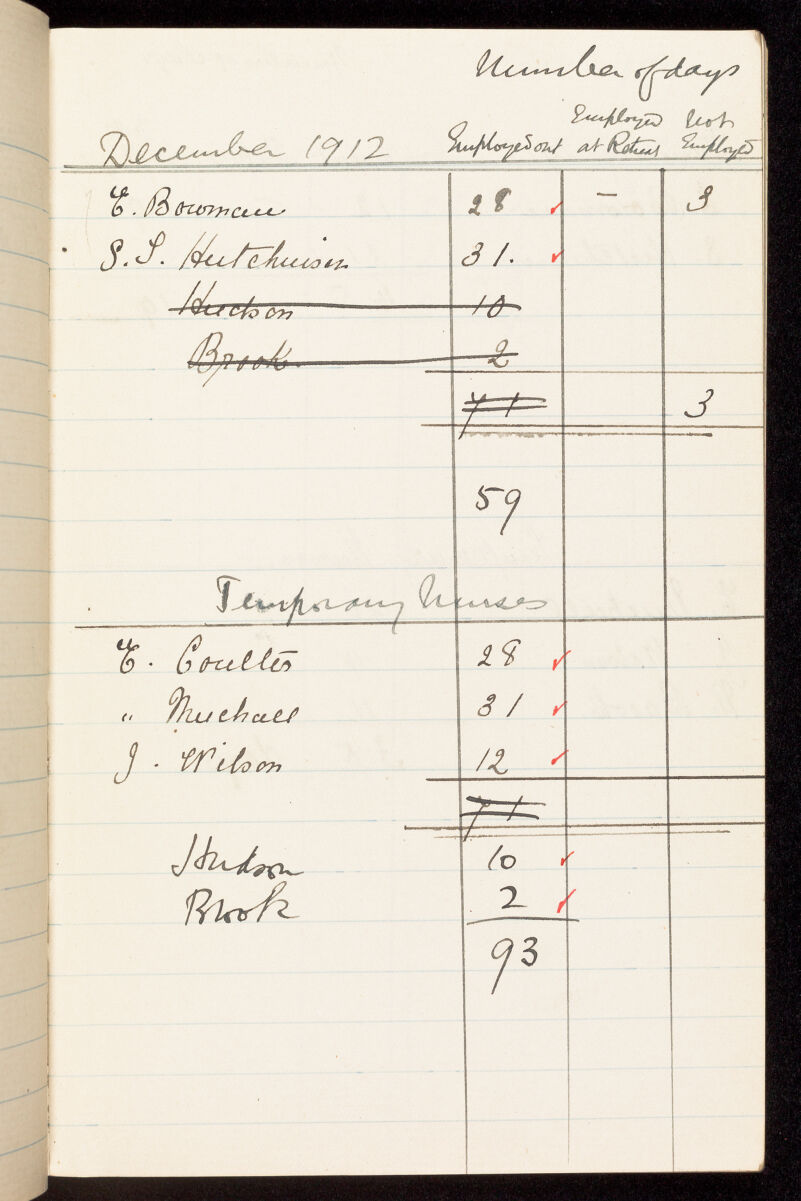 Number of days
December 1912 Employed out Employed at Retreat Not Employed
E. Bowman 28 ✓ – 3
S. S. Hutchinson 31. ✓
Hudson 10
Brook 2
71 3
59
Temporary Nurses
E. Coulter 28 ✓
" Michael 31 ✓
J. Wilson 12 ✓
71
Hudson 10 ✓
Brook 2 ✓
93